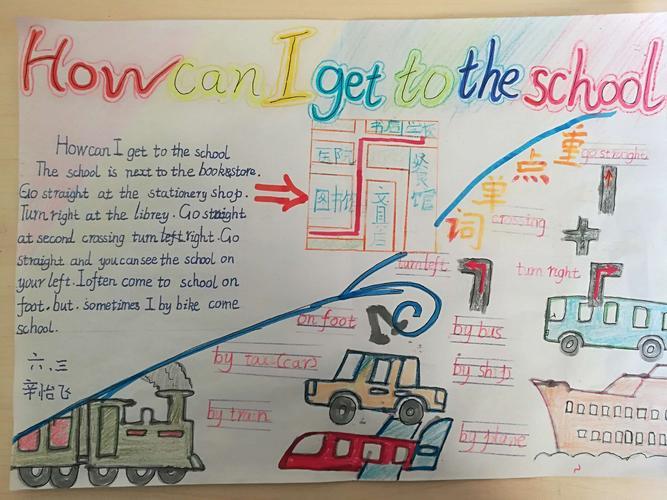 How can I get to the school
How can I get to the school
The school is next to the bookstore.
Go straight at the stationery shop.
Turn right at the librey. Go straight
at second crossing turn left right. Go
straight and you can see the school on
your left. I often come to school on
foot. but. sometimes I by bike come
school.
六.三
辛怡飞
书店 学校
医院
图书馆
文具店
重点单词
go straight
crossing
turn left
turn right
on foot
by bus
by taxi (car)
by ship
by train
by plane